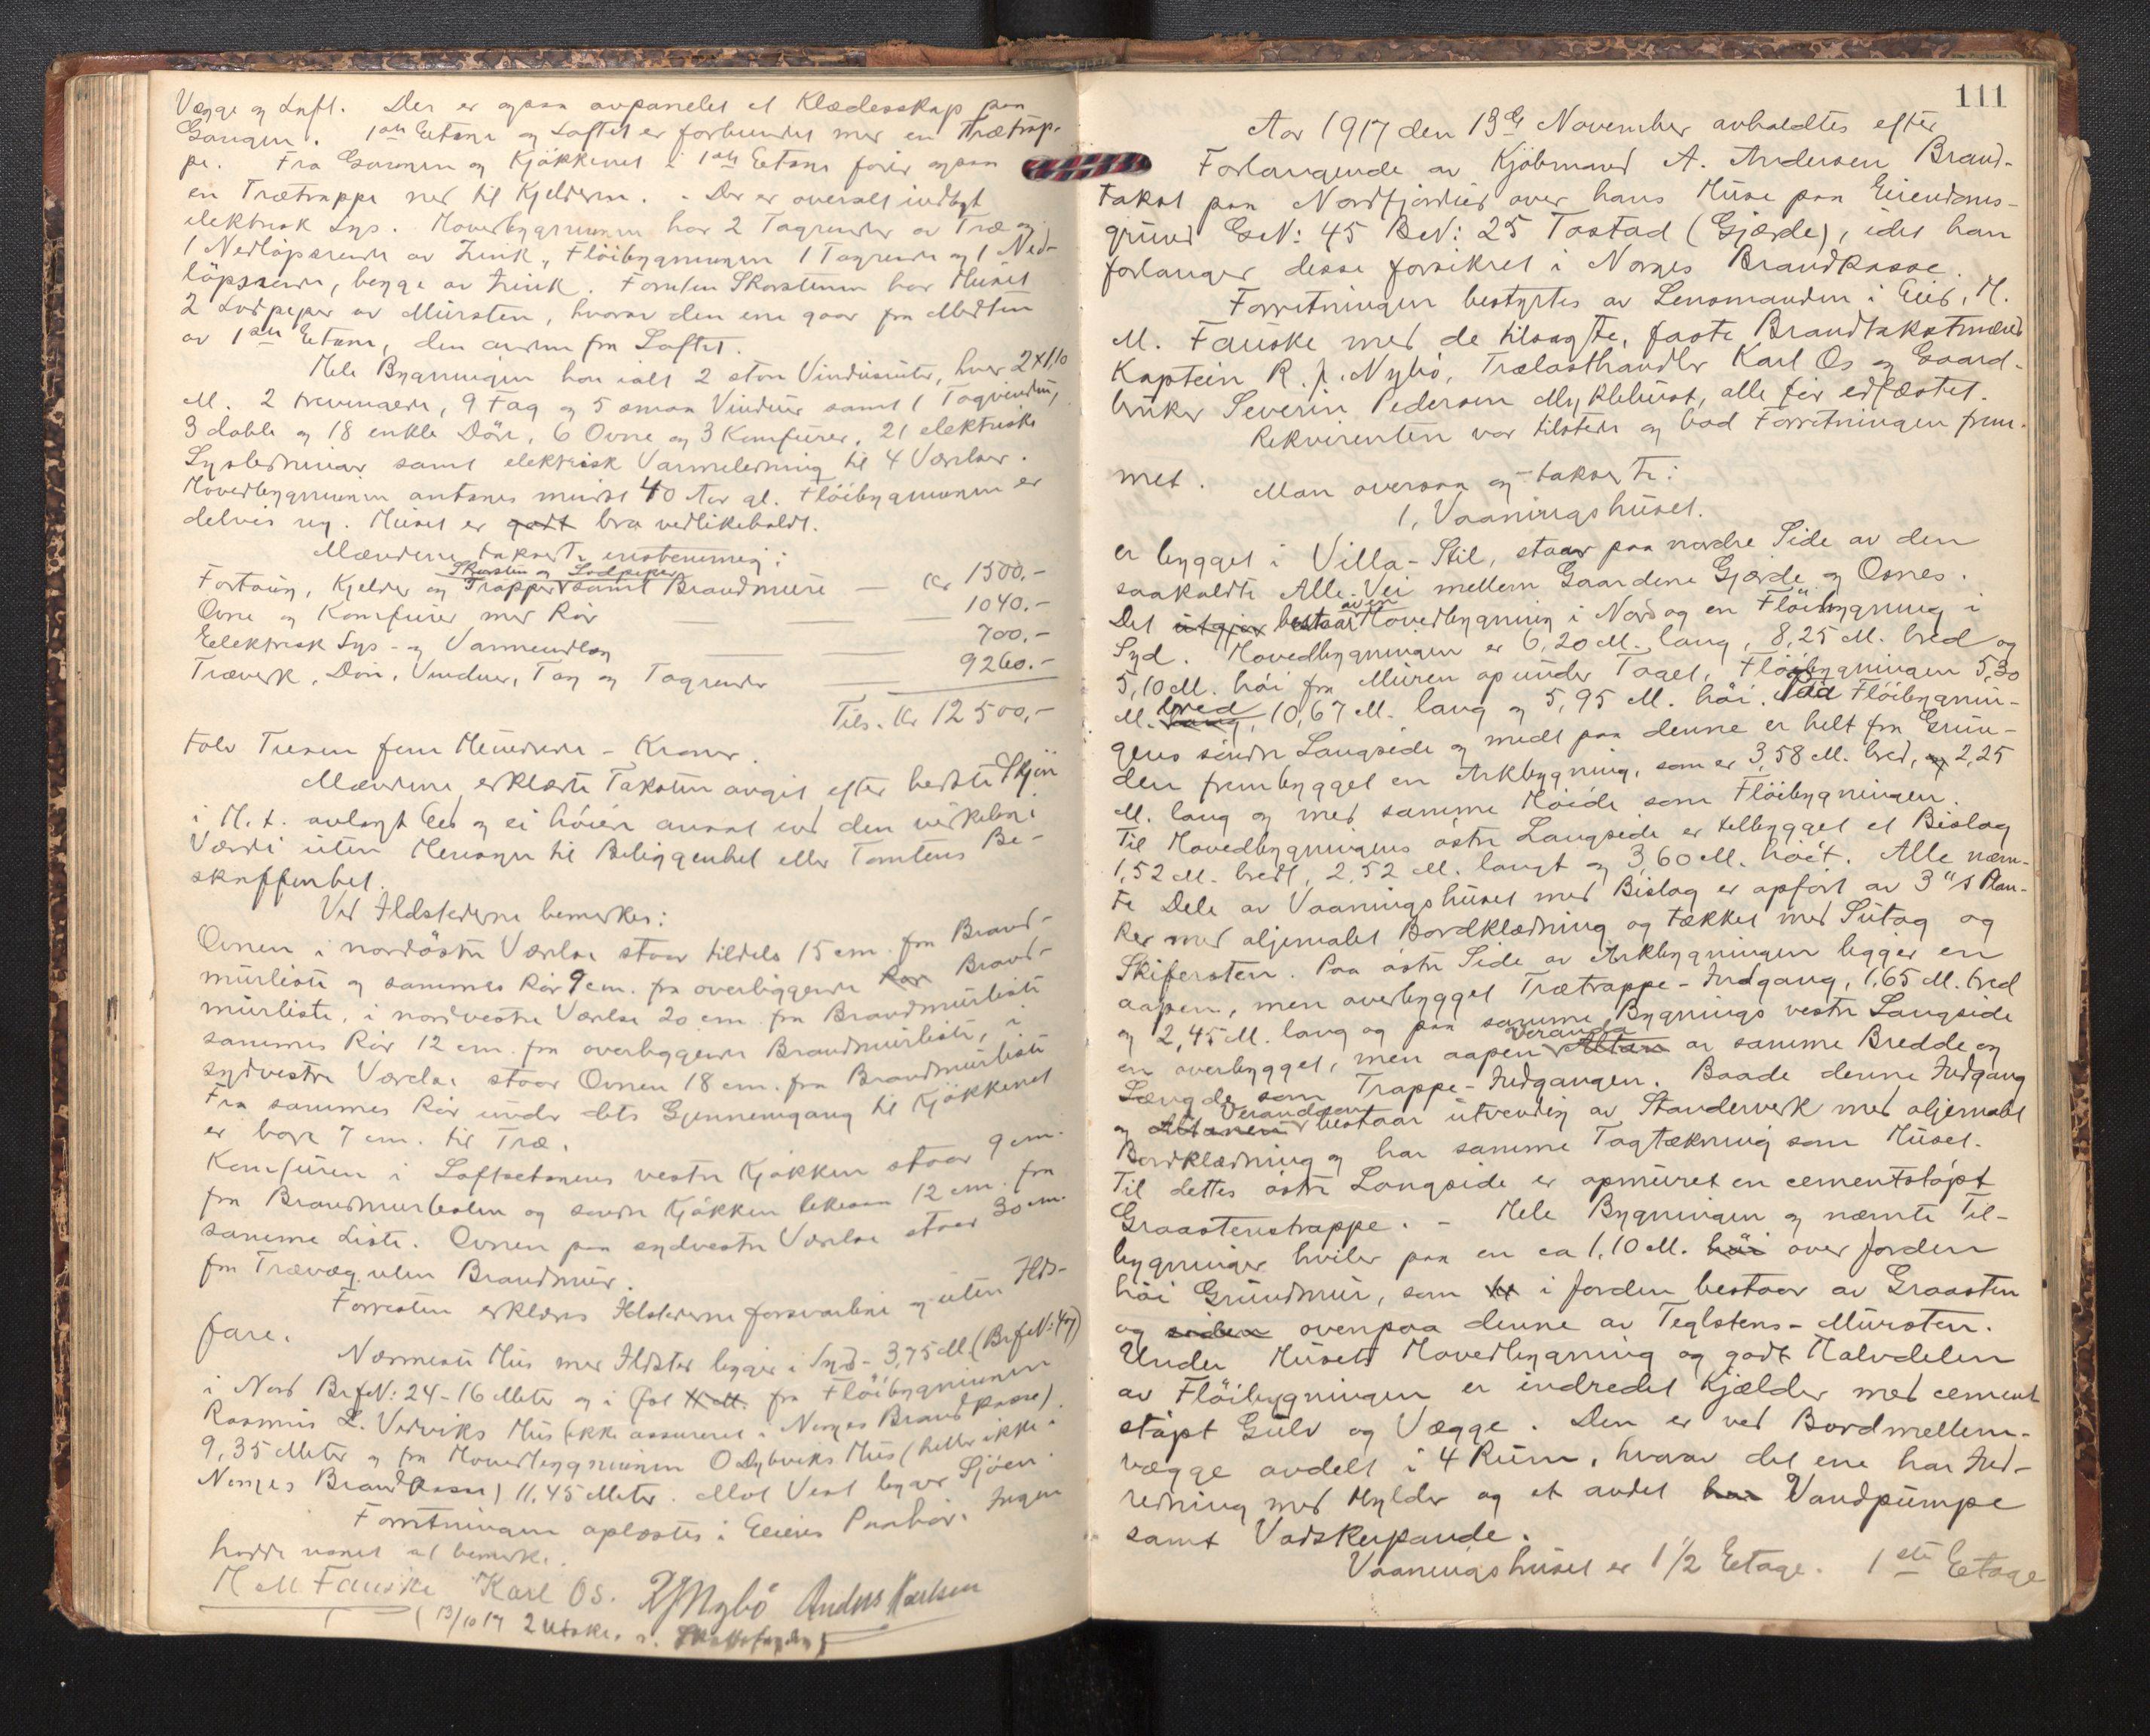 Vægge og Luft. Der er ogsaa avpanelet et Klædesskap paa
Gangen. 1ste Etage og Loftet er forbundet med en Trætrap-
pe. Fra Gangen og Kjøkkenet i 1ste Etage fører ogsaa
en Trætrappe ned til Kjelderen. - Der er overalt indlagt
elektrisk Lys. Hovedbygningen har 2 Tagrender av Træ og
1 Nedløpsrende av Zink, Fløibygningen 1 Tagrende og 1 Ned-
løpsrende, begge av Zink. Foruten Skorstenen har Huset
2 Lodpiper av Mursten, hvorav den ene gaar fra Midten
av 1ste Etage, den anden fra Loftet.
Hele Bygningen har ialt 2 store Vinduer, hver 2x1,10
M. 2 trevingede, 9 Fag og 5 smaa Vinduer samt 1 Tagvindu,
3 doble og 18 enkle Døre, 6 Ovne og 3 Komfurer, 21 elektriske
Lysledninger samt elektrisk Varmeledning til 4 Værelser.
Hovedbygningen antages mindst 40 Aar gl. Fløibygningen er
delvis ny. Huset er godt bra vedlikeholdt.
Mændene taksert enstemmig:
Skorsten og Lodpiper
Fortoug, Kjelder og Trapper samt Brandmure — Kr 1500.-
Ovne og Komfurer med Rør 1040.-
Eelektrisk Lys- og Varmeanlæg 700.-
Træverk, Døre, Vinduer, Tag og Tagrender 9260.-
Tils. Kr 12500,-
tolv Tusen fem Hundrede - Kroner.
Mændene erklærte Taksten avgit efter bedste Skjøn
i H.t. avlagt Eed og ei høiere ansat end den virkelige
Værdi uten Hensyn til Beliggenhet eller Tomtens Be-
skaffenhet.
Ved Ildstederne bemerkes:
Ovnen i nordøstre Værelse staar tildels 15 cm. fra Brand-
murliste og sammes Rør 9 cm. fra overliggende Rør Brand-
murliste, i nordvestre Værelse 20 cm. fra Brandmurliste
sammes Rør 12 cm. fra overliggende Brandmurliste, i
sydvestre Værelse staar Ovnen 18 cm. fra Brandmurliste
Fra sammes Rør under dets Gjennemgang til Kjøkkenet
er bare 7 cm. til Træ.
Komfuren i Loftsetagens vestre Kjøkken staar 9 cm.
fra Brandmurlisten og søndre Kjøkken likesaa 12 cm. fra
samme Liste. Ovnen paa sydvestre Værelse staar 30 cm.
fra Trævæg uten Brandmur.
Forresten erklæres Ildstederne forsvarlige og uten Ilds-
fare.
Nærmeste Hus med Ildsted ligger i Syd - 3,75 M (Brf.N: 47)
i Nord Brf.N: 24 - 16 Meter og i Øst fra Fløibygningen
Rasmus L. Vedviks Hus (ikke assureret i Norges Brandkasse)
9,35 Meter og fra Hovedbygningen O Dybviks Hus (heller ikke i
Norges Brandkasse) 11,45 Meter. Mot Vest ligger Sjøen.
Forretningen oplæstes i Eieres Paahør. Ingen
hadde noget at bemerke.
H M Fauske Karl Os. R J Nybö Anders Karlsen
(13/10 17 2 Utskr. s.
111
Aar 1917 den 13de November avholdtes efter
Forlangende av Kjøbmand A. Andersen Brand-
takst paa Nordfjordeid over hans Huse paa Eiendoms-
grund GN: 45 BN: 25 Tostad (Gjærde), idet han
forlanger disse forsikret i Norges Brandkasse.
Forretningen bestyrtes av Lensmanden i Eid, H.
M. Fauske med de tilsagte, faste Brandtakstmænd
Kaptein R. J. Nybö, Trælasthandler Karl Os og Gaard-
bruker Severin Pedersen Myklebust, alle før edfæstet.
Rekvirenten var tilstede og bad Forretningen frem-
met. Man oversaa og taksert:
1, Vaaningshuset.
er bygget i Villa-Stil, staar paa nordre Side av den
saakaldte Alle-Vei mellem Gaardene Gjærde og Osnes.
av en
Det utgjør bestaar Hovedbygning i Nord og en Fløibygning i
Syd. Hovedbygningen er 6,20 M. lang, 8,25 M. bred og
5,10 M. høi fra Muren op under Taget, Fløibygningen 5,30
bred
M. lang, 10,67 M. lang og 5,95 M. høi. Paa Fløibygnin-
gens søndre Langside og midt paa denne er helt fra Grun-
den frembygget en Arkbygning, som er 3,58 M. bred, og 2,25
M. lang og med samme Høide som Fløibygningen.
Til Hovedbygningens østre Langside er tilbygget et Bislag
1,52 M. bredt, 2,52 M. langt og 3,60 M. høit. Alle nævn-
te Dele av Vaaningshuset med Bislag er opført av 3" Plan-
ker med oljemalet Bordklædning og tækket med Sutag og
Skifersten. Paa østre Side av Arkbygningen ligger en
aapen, men overbygget Trætrappe-Indgang, 1,65 M. bred
og 2,45 M. lang og paa samme Bygnings vestre Langside
Veranda
en overbygget, men aapen Altan av samme Bredde og
Længde som Trappe-Indgangen. Baade denne Indgang
Verandaen
og Altanen bestaar utvendig av Standerverk med oljemalet
Bordklædning og har samme Tagtækning som Huset.
Til dettes østre Langside er opmuret en cementstøpt
Graastenstrappe. - Hele Bygningen og nævnte Til-
bygninger hviler paa en ca 1,10 M. høi over Jorden
høi Grundmur, som i Jorden bestaar av Graasten
og siden ovenpaa denne av Teglstens-Mursten.
Under Husets Hovedbygning og godt Halvdelen
av Fløibygningen er indredet Kjælder med cement
støpt Gulv og Vægge. Den er ved Bordmellem-
vægge avdelt i 4 Rum, hvorav det ene har Ind-
redning med Hylder og et andet har Vandpumpe
samt Vadskepande.
Vaaningshuset er 1 1/2 Etage. 1ste Etage